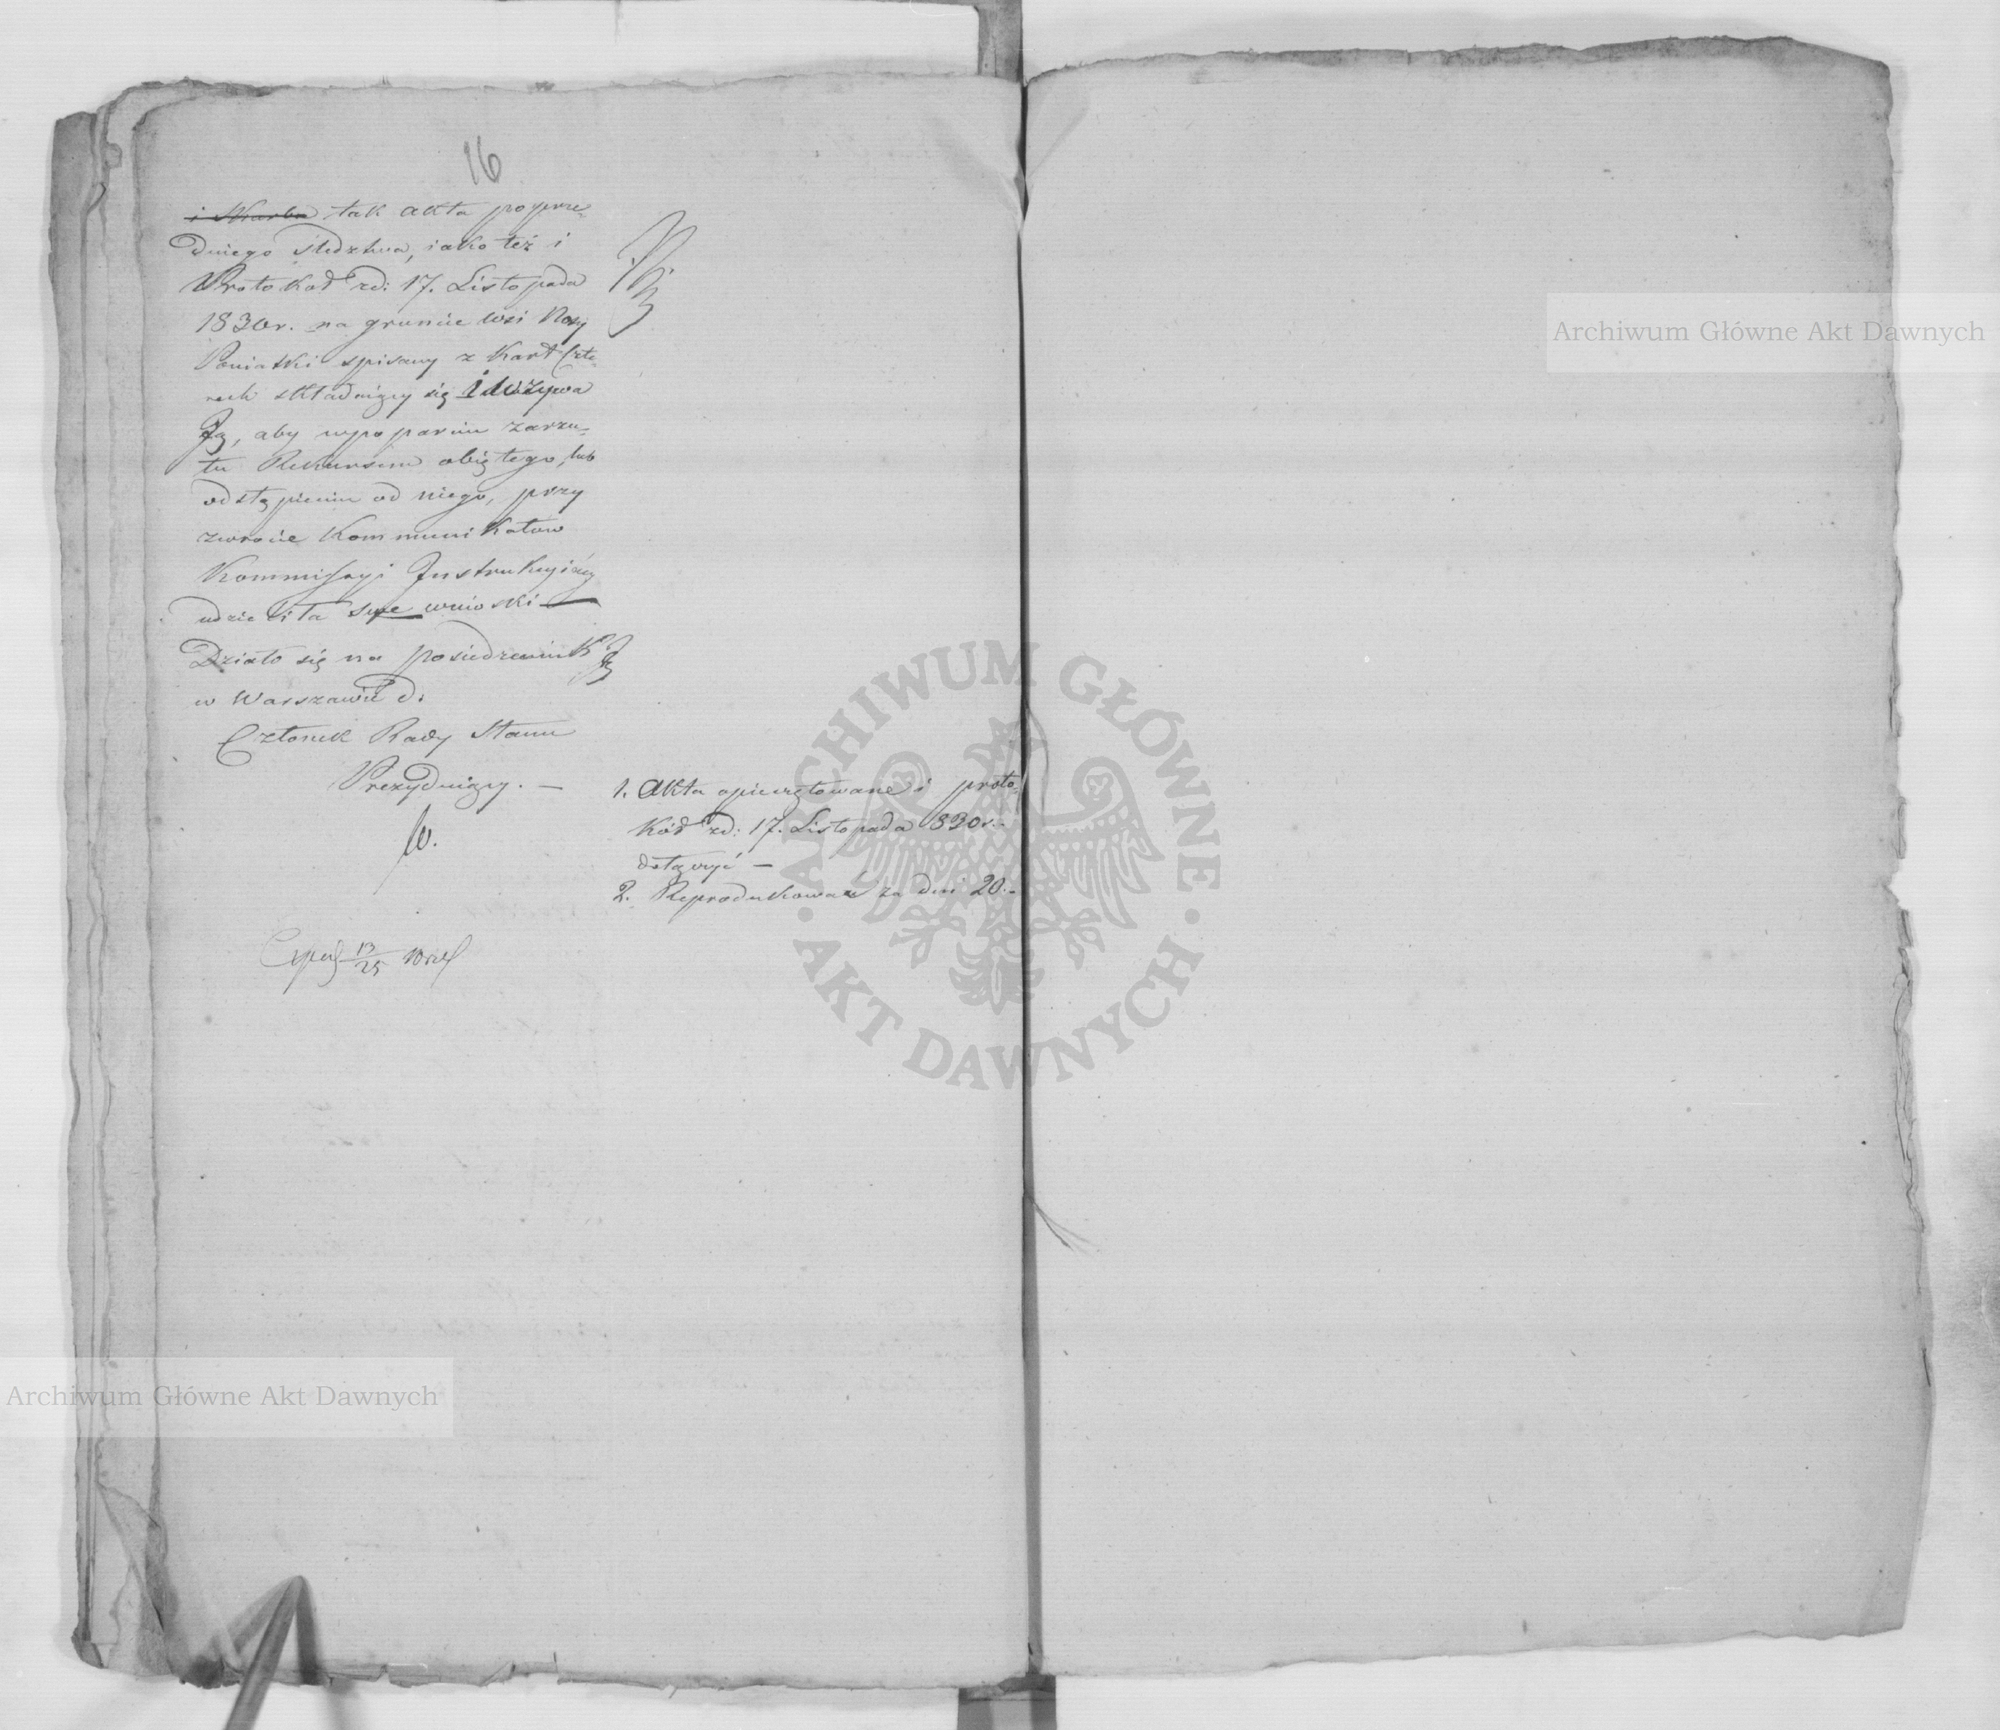 16
i Skarbu tak akta poprze-
dniego śledztwa, jako też i
Protokoł zd: 17. Listopada
1830r. na gruncie wsi
Poniatki spisany z kart czte-
rech składaiący się i wzywa
Ją, aby w poparciu zarzu-
tu Rekursem obiętego, lub
odstąpieniu od niego, przy
zwrocie Kommunikatow
Kommissyi Instrukcyiney
udzieliła swe wnioski —
Działo się na posiedzeniu
w Warszawie d:
Członek Rady Stanu
Prezyduiący. —
1. Akta opieczętowane i proto-
kół zd: 17. Listopada 830r.-
dołączyć —
2. Reprodukować za dni 20.-
13/25
Archiwum Główne Akt Dawnych
ARCHIWUM GŁÓWNE
· AKT DAWNYCH ·
Archiwum Główne Akt Dawnych